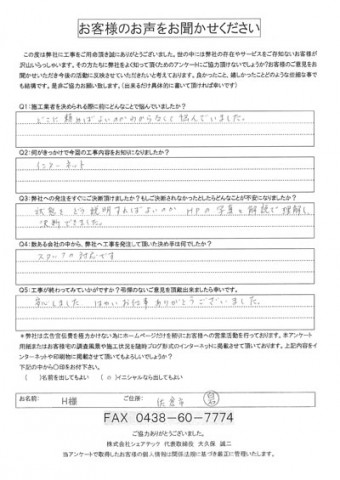 お客様のお声をお聞かせください
この度は弊社に工事をご用命頂き誠にありがとうございました。世の中には弊社の存在やサービスをご存知ないお客様が
沢山いらっしゃいます。その方たちに弊社をよく知って頂くためのアンケートにご協力頂けないでしょうか?お客様のご意見をお
聞かせいただき今後の活動に反映させていただきたいと考えております。良かったこと、嬉しかったことどのような些細な事で
も結構です。是非ご協力お願い致します。(出来るだけ具体的に書いて頂ければ幸いです)
Q1:施工業者を決められる際に何にどんなことで悩んでいましたか?
どこに頼めばよいのかわからなく悩んでいました。
Q2:何がきっかけで今回の工事内容をお知りになりましたか?
インターネット
Q3:弊社への発注をすぐにご決断頂けましたか?もしご決断されなかったとしたらどんなことが不安になりましたか?
状態をどう説明すればよいのか HPの写真と解説で理解し
決断できました。
Q4:数ある会社の中から、弊社へ工事を発注して頂いた決め手は何でしたか?
スタッフの対応です
Q5:工事が終わってみていかがですか?引渡のないご意見を頂戴出来ましたら幸いです。
安心しました はやいお仕事ありがとうございました。
*弊社は広告宣伝費を極力かけない為にホームページだけを頼りにお客様への営業活動を行っております。本アンケート
用紙またはお客様宅の調査風景や施工状況を随時ブログ形式のインターネットに掲載させて頂いております。上記内容をイ
ンターネットや印刷物に掲載させて頂いてもよろしいでしょうか?
下記の中から〇印をお付け下さい。
( )名前を出してもよい (〇)イニシャルなら出してもよい
お名前: H様 ご住所: 佐倉市
FAX 0438-60-7774
ご協力ありがとうございました。
株式会社シェアテック 代表取締役 大久保 誠二
当アンケートで取得したお客様の個人情報は関係法令に基づき厳正に管理いたします。